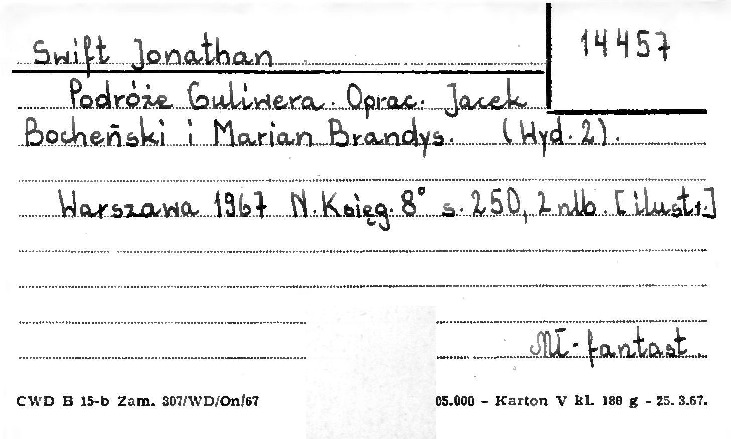 Swift Jonathan
14457
Podróże Guliwera. Oprac. Jacek
Bocheński i Marian Brandys. (Wyd. 2).
Warszawa 1967 N. Księg. 8° s. 250, 2 nlb. [ilustr.]
Mł-fantast.
CWD B 15-b Zam. 307/WD/On/67
05.000 - Karton V kl. 180 g - 25. 3.67.